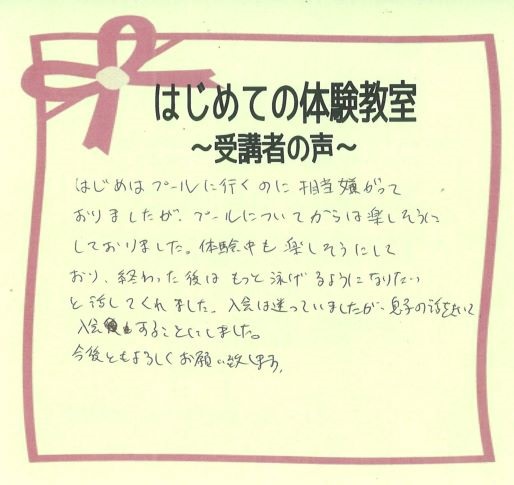 はじめての体験教室
~受講者の声~
はじめはプールに行くのに相当嫌がって
おりましたが、プールについてからは楽しそうに
しておりました。体験中も楽しそうにして
おり、終わった後はもっと泳げるようになりたい
と話してくれました。入会は迷っていましたが、息子の話をきいて
入会することにしました。
今後ともよろしくお願い致します。